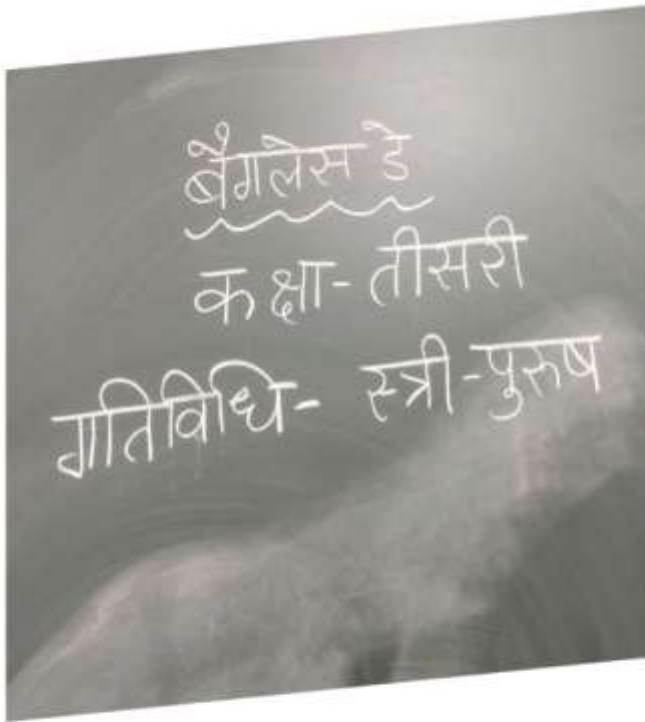 बैगलेस डे
कक्षा- तीसरी
गतिविधि- स्त्री-पुरुष